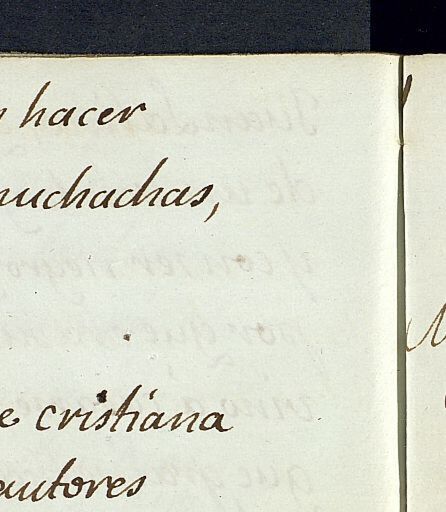 hacer
muchachas,
cristiana
autores